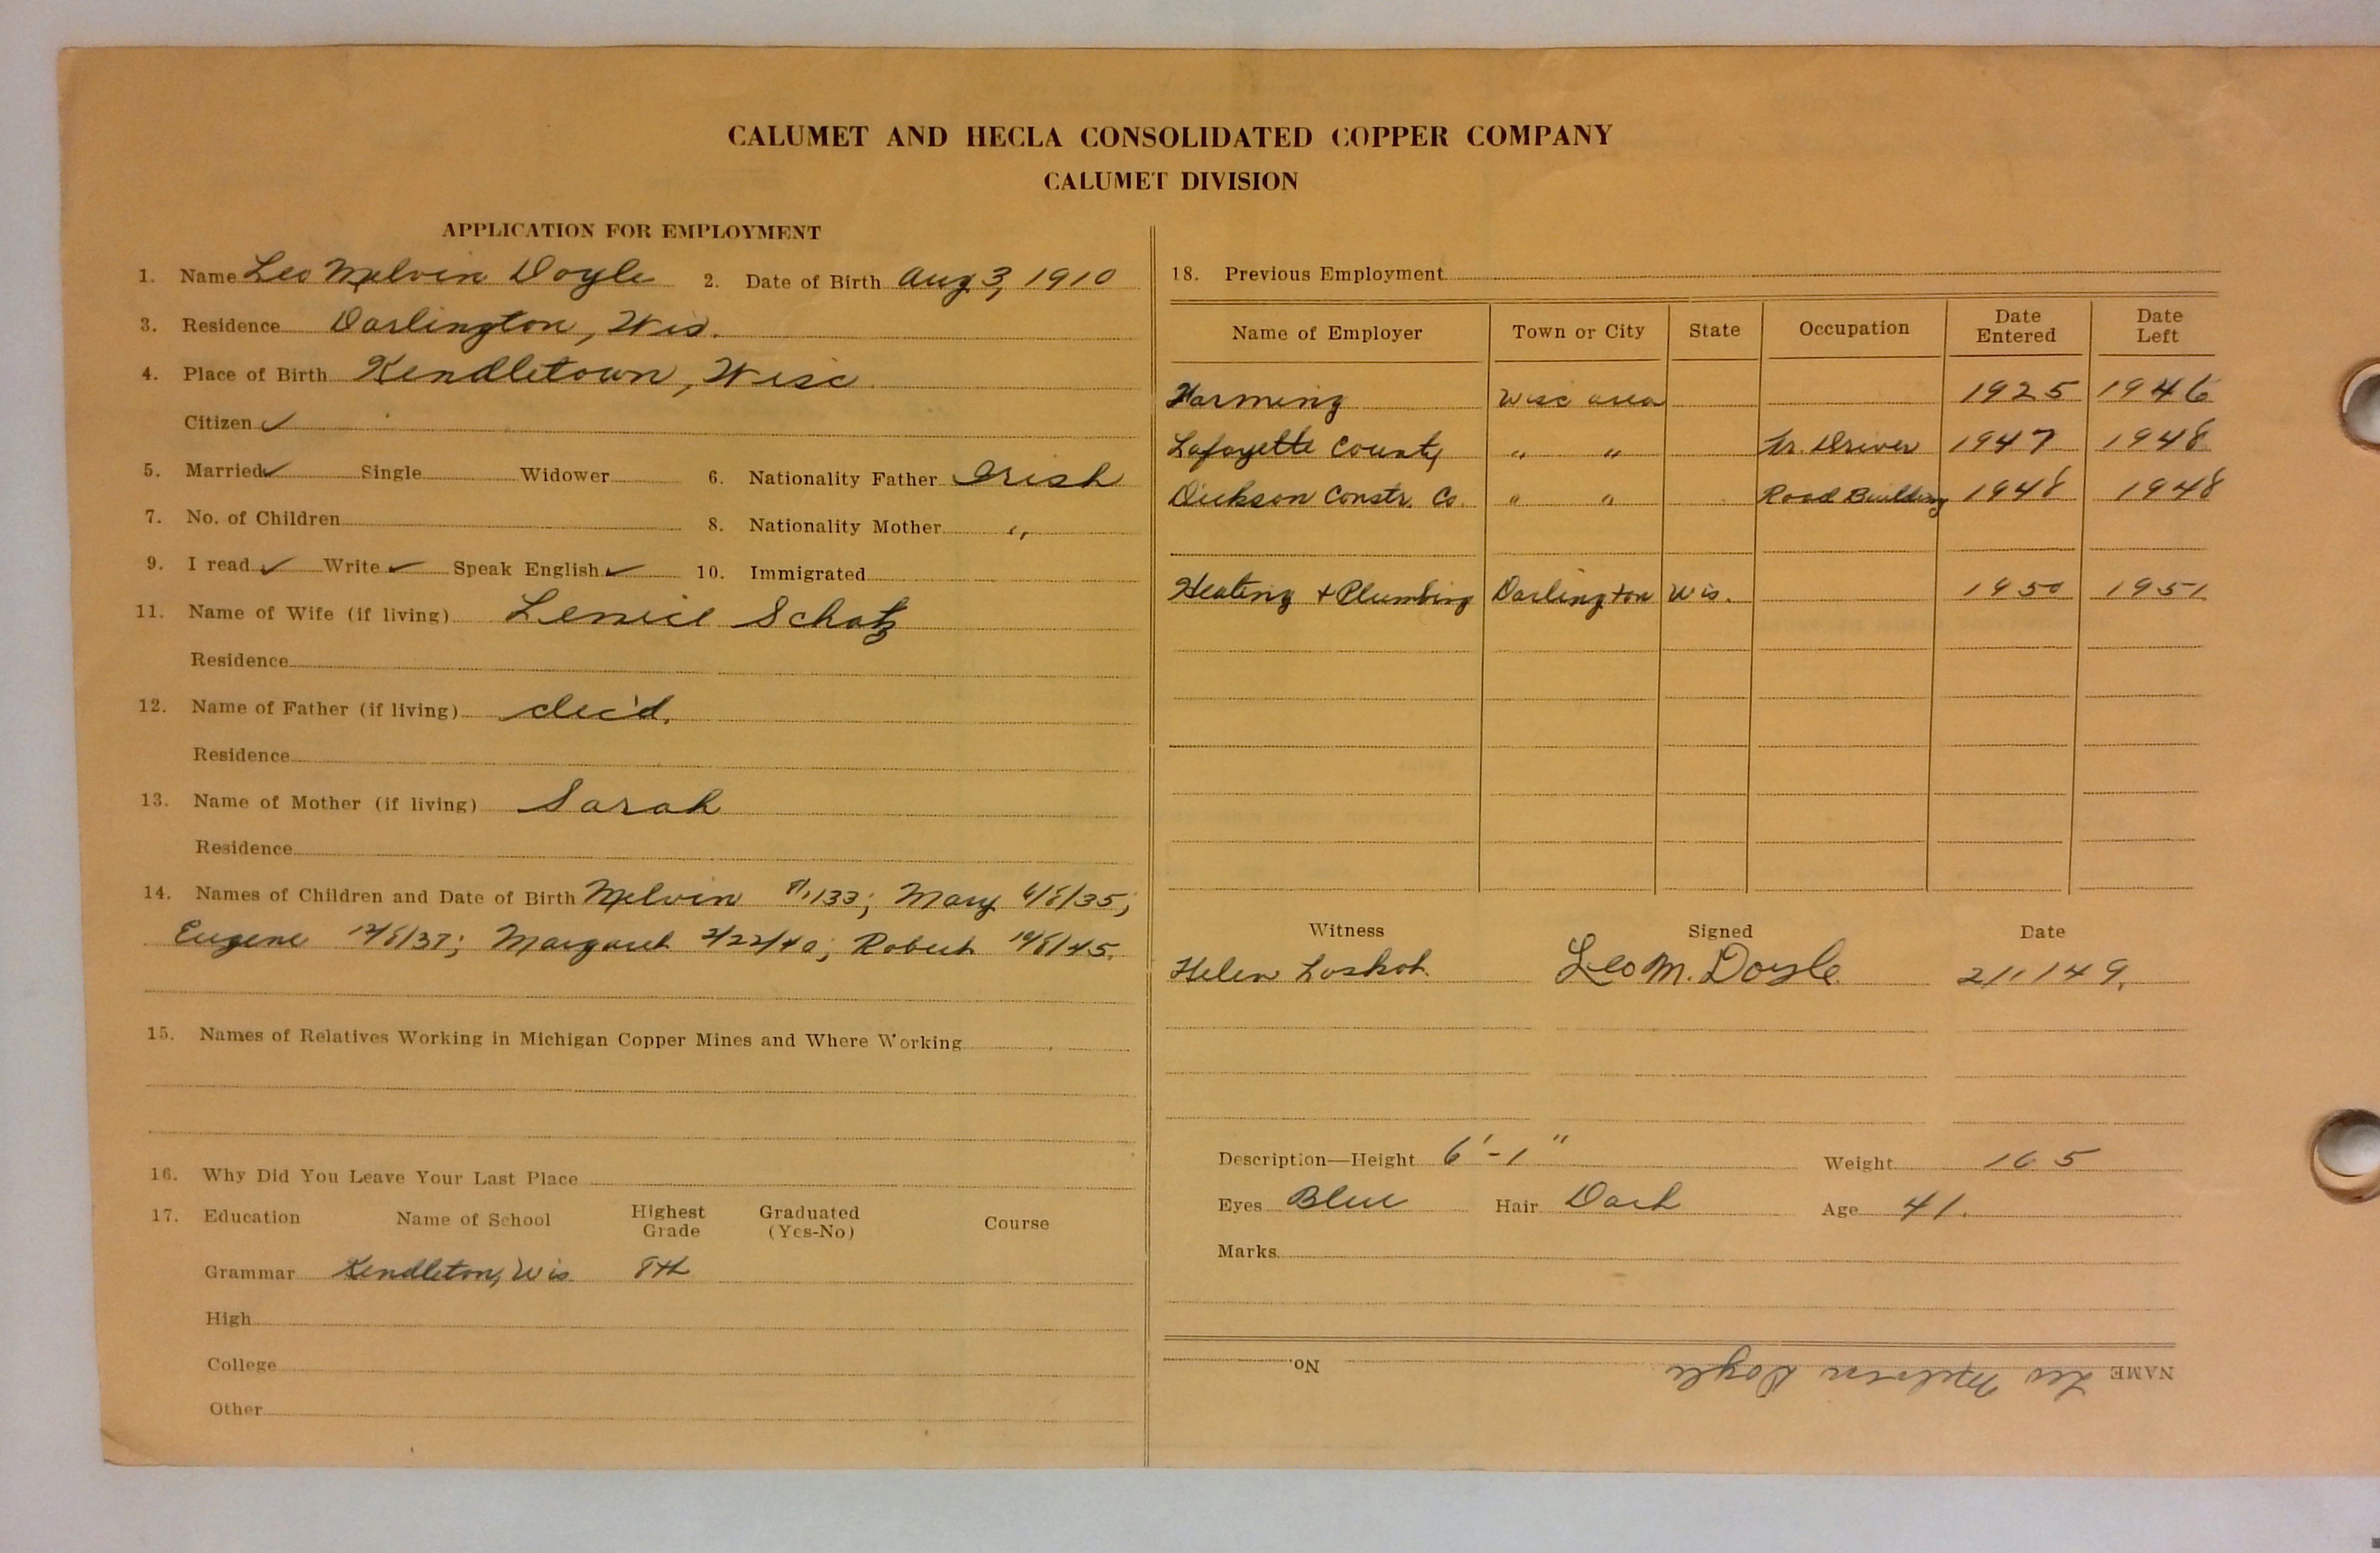 CALUMET AND HECLA CONSOLIDATED COPPER COMPANY
CALUMET DIVISION
APPLICATION FOR EMPLOYMENT
1. Name Leo Melvin Doyle 2. Date of Birth Aug 3, 1910
3. Residence Darlington, Wis.
4. Place of Birth Kendletown, Wisc
Citizen ✓
5. Married ✓ Single Widower 6. Nationality Father Irish
7. No. of Children 8. Nationality Mother "
9. I read ✓ Write ✓ Speak English ✓ 10. Immigrated
11. Name of Wife (if living) Schatz
Residence
12. Name of Father (if living) dec'd.
Residence
13. Name of Mother (if living) Sarah
Residence
14. Names of Children and Date of Birth Melvin Mary 6/8/35;
Eugene 12/8/37; Margaret 2/22/40; Robert 10/8/45.
15. Names of Relatives Working in Michigan Copper Mines and Where Working
16. Why Did You Leave Your Last Place
17. Education Name of School Highest Grade Graduated (Yes-No) Course
Grammar Kendleton, Wis 8th
High
College
Other
18. Previous Employment
Name of Employer Town or City State Occupation Date Entered Date Left
Farming Wisc area 1925 1946
Lafayette County " " Tr. Driver 1947 1948
Dickson Constr. Co. " " Road Building 1948 1948
Heating + Plumbing Darlington Wis. 1950 1951
Witness Signed Date
Helen Leo M. Doyle 2/1/49.
Description—Height 6'-1" Weight 165
Eyes Blue Hair Dark Age 41.
Marks
NAME Leo Melvin Doyle No.